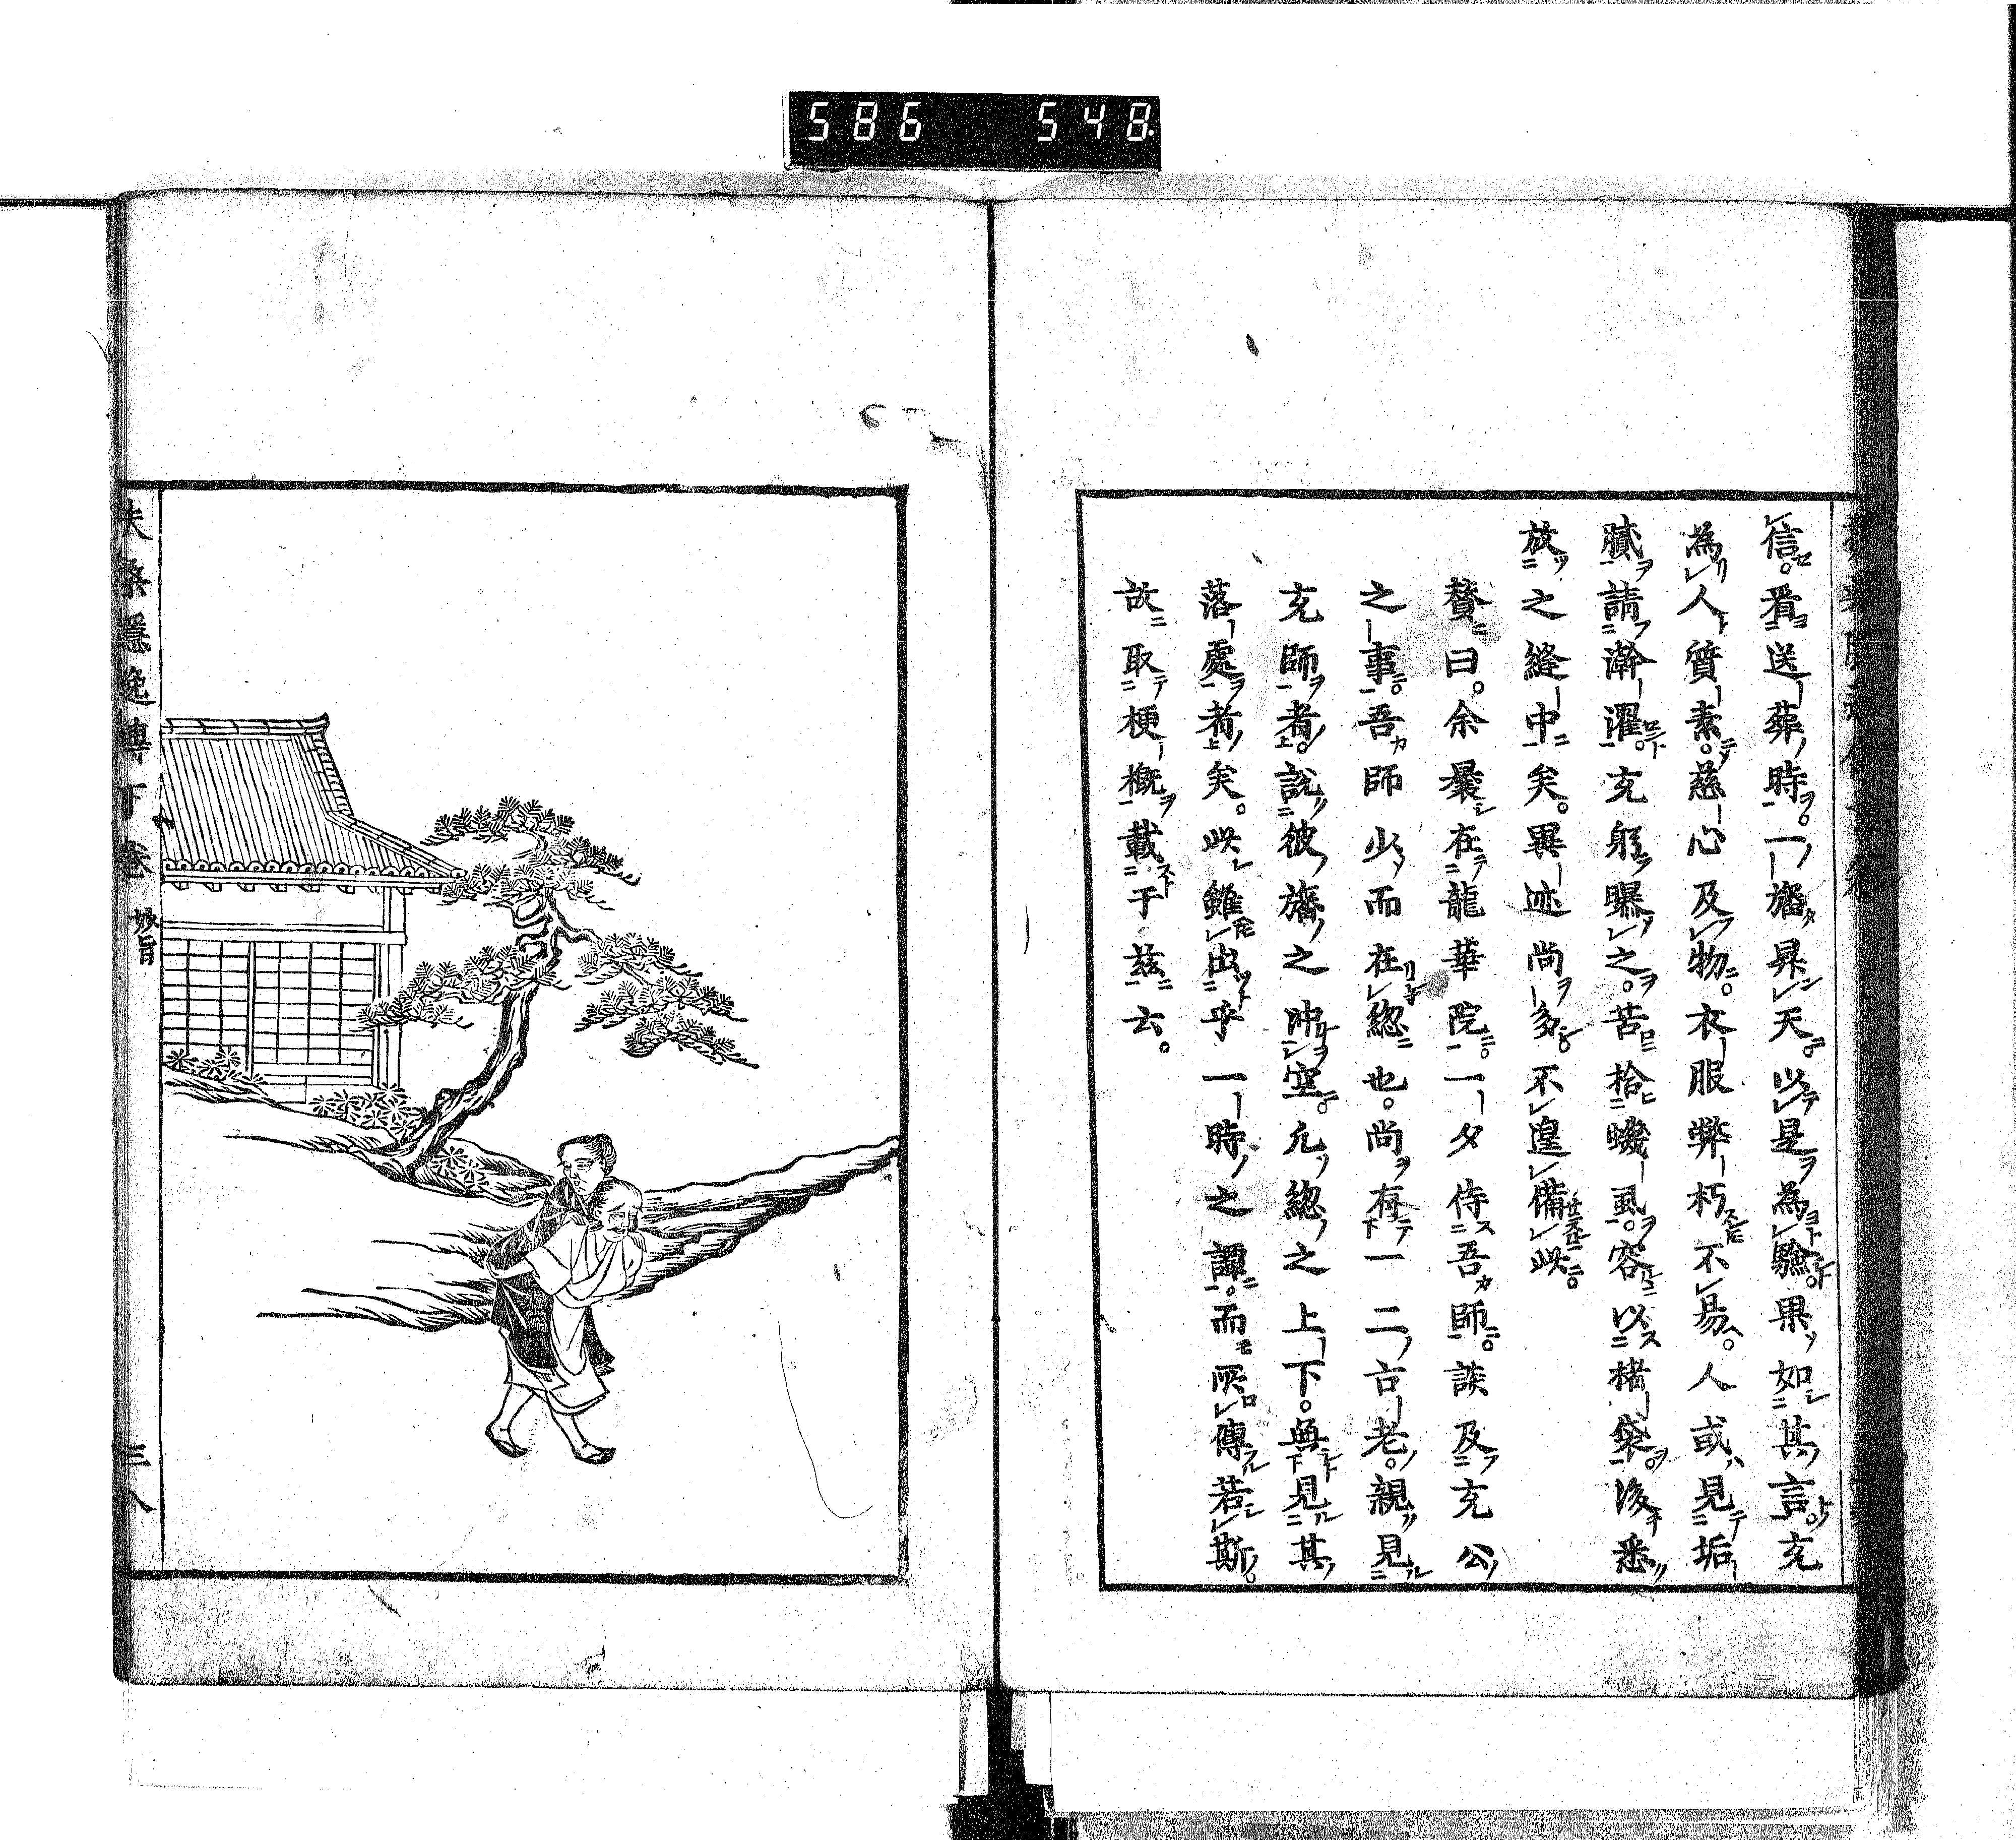 586 548
信。看送葬ノ時ヲ。一ノ旛昇天。以是ヲ為驗。果如其言。玄
為人質素。慈心及物。衣服弊朽不易。人或見垢
膩請澣濯。玄躬曝之。苦拾蟣虱。容以楮袋。後悉
放之縫中矣。異迹尚多。不遑備此。
贊曰。余曩在龍華院。一夕侍吾師。談及玄公
之事。吾師少而在総也。尚有一二古老。親見
玄師者。說彼旛之冲空。允総之上下。無見其
落處者矣。此雖出乎一時之譚。而所傳若斯。
故取梗概載于茲云。
扶桑隱逸傳下卷 妙旨 三八